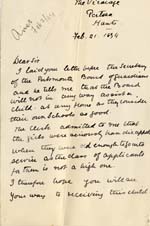 The Vicarage
Portsea
Hants
Feb. 21 1894
Dear Sir
I laid your letter before the Secretary
of the Portsmouth Board of Guardians
and he tells me that the Board
will not in any way assist a
child at any Home as they consider
their own Schools as good
The Clerk admitted to me that
the girls were
when they were old enough to go into
service as the class of applicants
for them is not a high one
I therefore hope you will see
your way to receiving this child